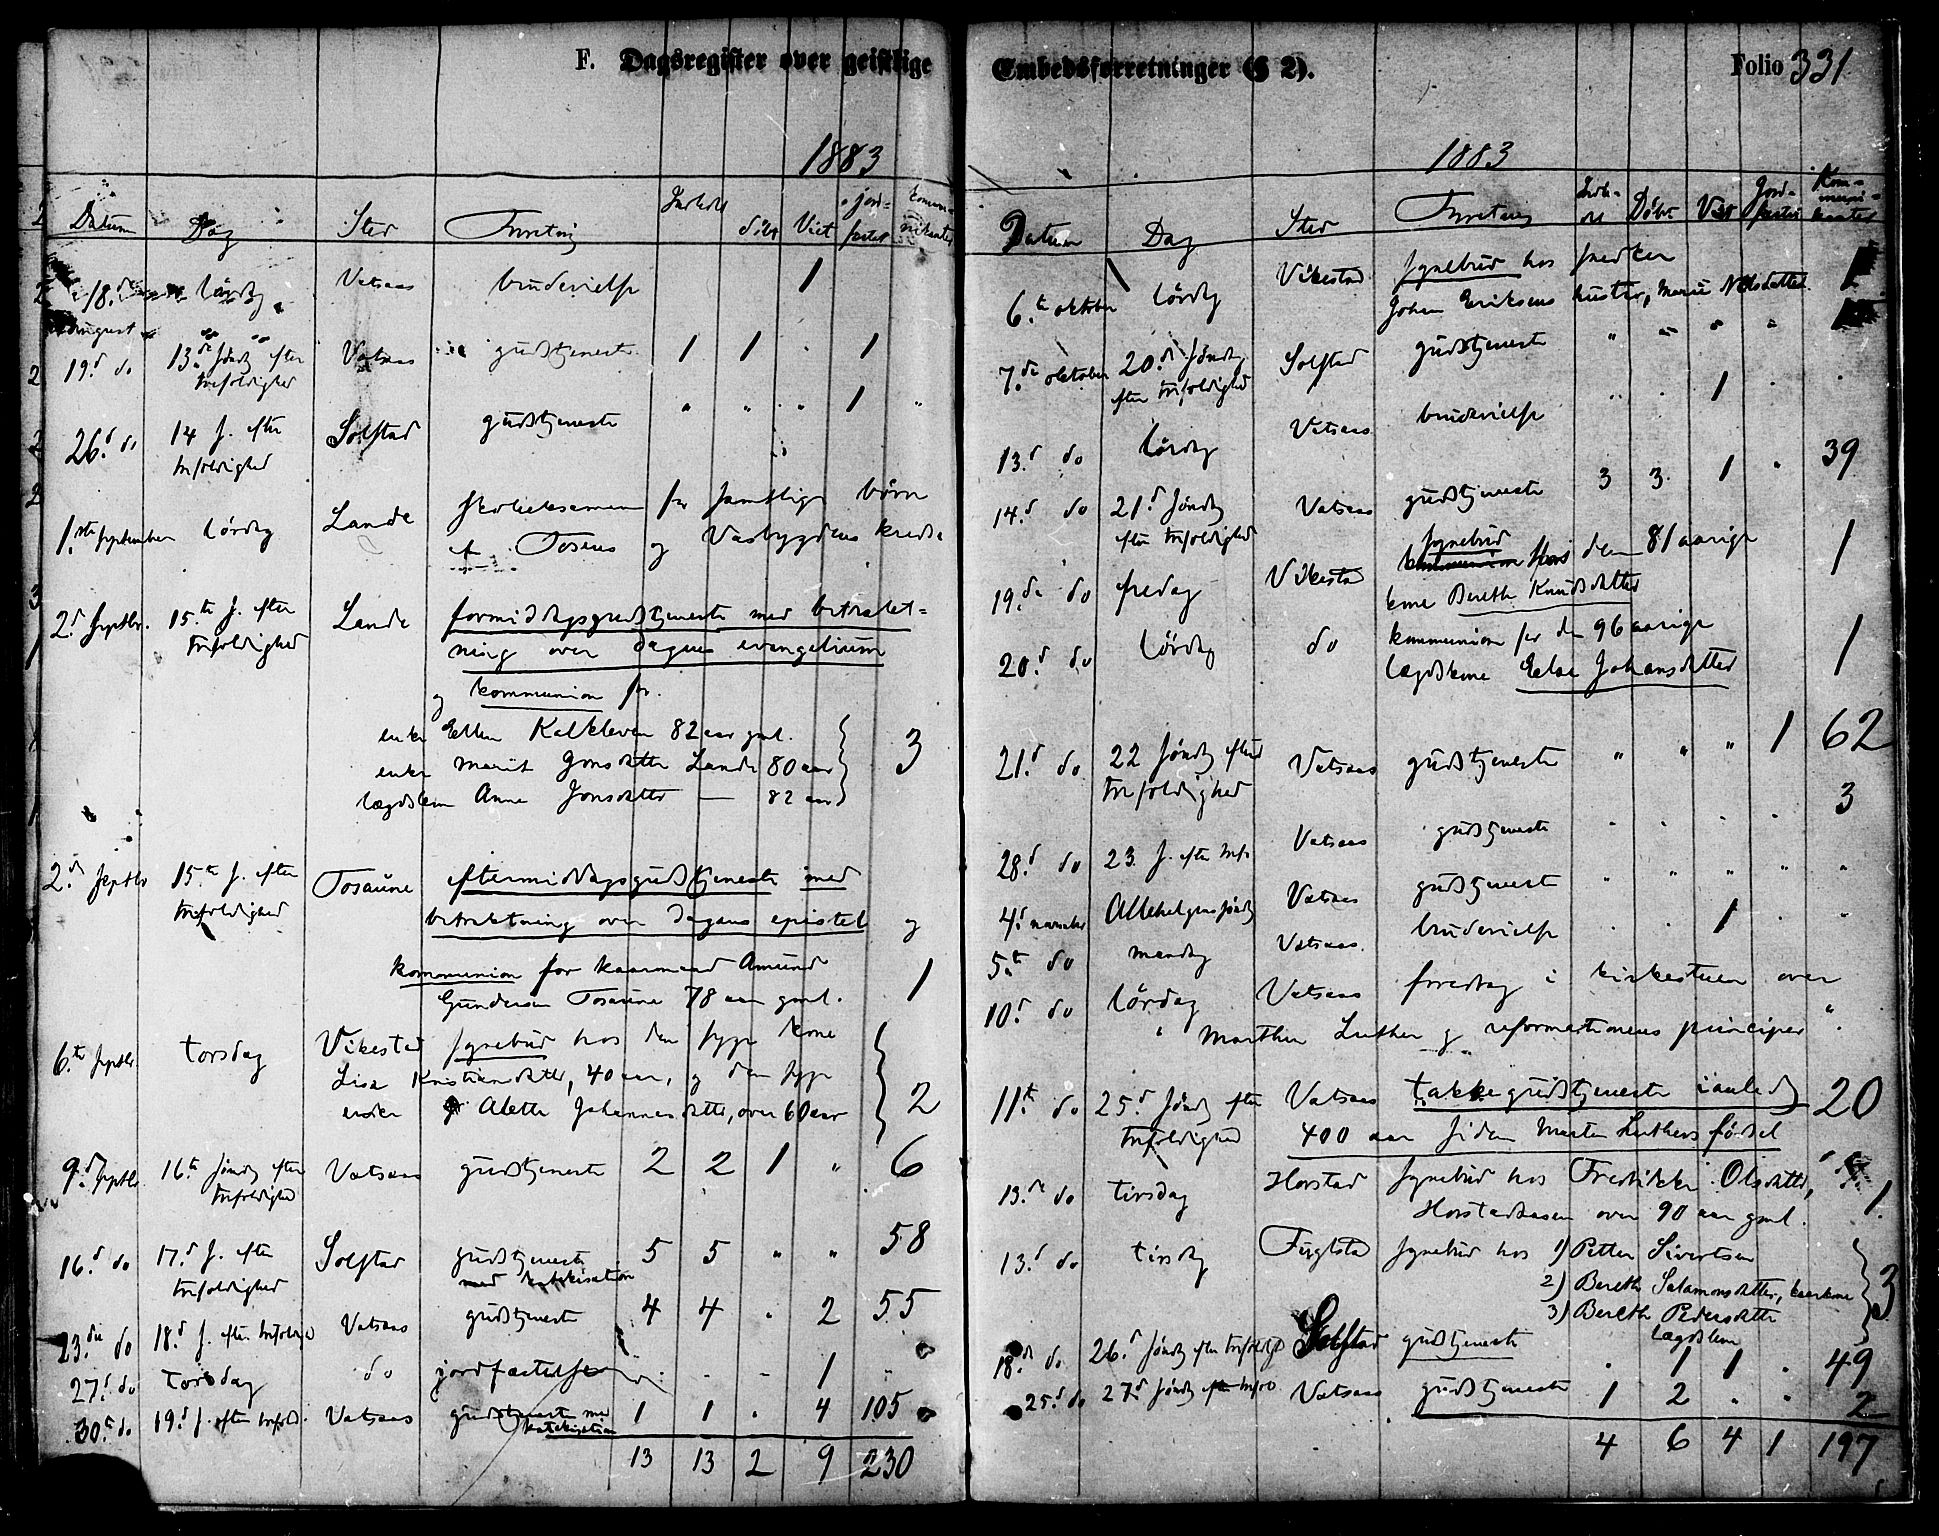 F. Dagsregister over geistlige
1883
Datum Dag Sted Forretning Indledt døbt Viet jord- fæstet kommu- nikanter
18. august lördag Vatsaas brudevielse 1
19.d do 13.de søndg efter trefoldighed Vatsaas gudstjeneste 1 1 . 1
26.d do 14 s. efter trefoldighed Solstad gudstjeneste " " " 1 "
1.ste september lördag Lande skoleeksamen for samtlige børn
af Tosens og Vasbygdens kreds.
2.d septbr. 15.te s. efter trefoldighed Lande formiddagsgudstjeneste med betrakt-
ning over dagens evangelium
og kommunion for
enke Ellen Kalkleven 82 aar gml.
enke Marit Jonsdatter Lande 80 aar 3
lægdslem Anne Jonsdatter — 82 aar
2.d septbr 15.te s. efter trefoldighed Tosaune eftermiddagsgudstjeneste med
betraktning over dagens epistel og
kommunion for kaarmand Amund
Gundersen Tosaune 78 aar gml. 1
6.te septbr. torsdag Vikestad sygebud hos den syge kone
Lisa Kristiansdatter, 40 aar, og den syge
enke Aleth Johannesdatter, over 60 aar 2
9.d septbr 16.te søndg efter trefoldighed Vatsaas gudstjeneste 2 2 1 " 6
16.d do 17.d s. efter trefoldighed Solstad gudstjeneste med katekisation 5 5 " " 58
23.die do 18.d s. efter trefoldighed Vatsaas gudstjeneste 4 4 . 2 55
27.d do torsdag do jordfæstelse . . - 1
30.d do 19.d s. efter trefold. Vatsaas gudstjeneste med katekisation 1 1 . 4 105
13 13 2 9 230
Embedsforretninger (§ 2). Folio 331
1883
Datum Dag Sted Forretning Indle- dt Døbt Viet Jord- fæstet Kom- muni- kanter
6.te oktober lördag Vikestad sygebud hos snedker
Johan Eriksens hustru, Marie Nilsdatter 1
7.de oktober 20.de søndg efter trefoldighed Solstad gudstjeneste " " " "
13.d do lördag Vatsaas brudevielse " . 1 . .
14.d do 21.d søndg efter trefoldighed Vatsaas gudstjeneste 3 3 1 " 39
19.de do fredag Vikestad sygebud hos den 81 aarige
kone Bereth Knudsdatter 1
20.d do lördag do kommunion for den 96 aarige
lægdskone Elen Johansdatter 1
21.d do 22 søndg efter trefoldighed Vatsaas gudstjeneste " " " 1 62
28.d do 23. s. efter tref. Vatsaas gudstjeneste . . . . 3
4.d november Allehelgenssøndg Vatsaas gudstjeneste " " " " "
5.te do mandag Vatsaas brudevielse . . 1 . "
10.d do lördag Vatsaas foredrag i kirkestuen over
Morthen Luther og reformationens principer "
11.te do 25.d søndg efter trefoldighed Vatsaas takkegudstjeneste i anledg 20
400 aar siden Morten Luthers fødsel
13.de do tirsdag Horstad sygebud hos Fredrikke Olsdatter,
Horstadaasen over 90 aar gml. 1.
13.d do tirsdg Fuglstad sygebud hos 1) Petter Sivertsen
2) Bereth Salamonsdatter, kaarkone 3
3) Bereth Pedersdatter
lægdslem
18.de do 26.d søndg efter trefoldighed Solstad gudstjeneste . 1 1 . 49
25.d do 27.d søndg efter trefold Vatsaas gudstjeneste 1 2 . . 2
4 6 4 1 197